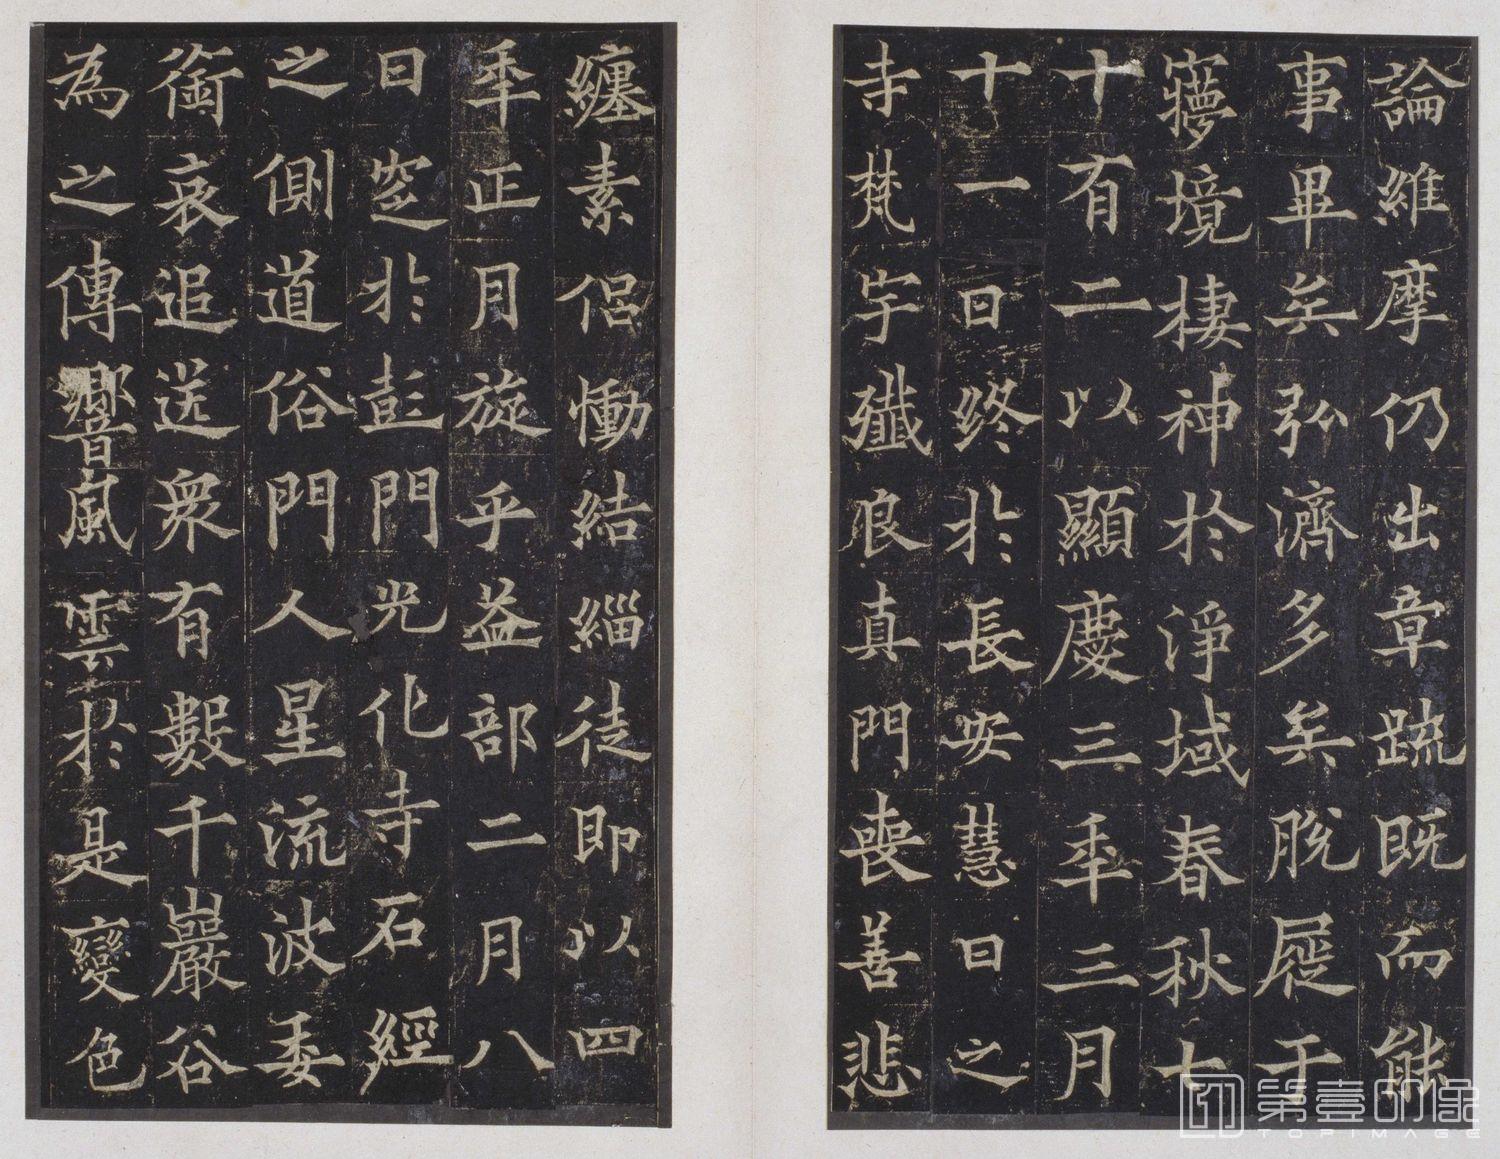 論維摩仍出章疏既而能
事畢矣弘濟多矣脫屣于
寱境棲神於淨域春秋七
十有二以顯慶三年三月
十一日終於長安慧日之
寺梵宇殲良真門喪善悲
纏素侶慟結緇徒即以四
年正月旋乎益部二月八
日窆於彭門光化寺石經
之側道俗門人星流波委
銜哀追送眾有數千巖谷
為之傳響風雲於是變色
第壹印象
TOPIMAGE